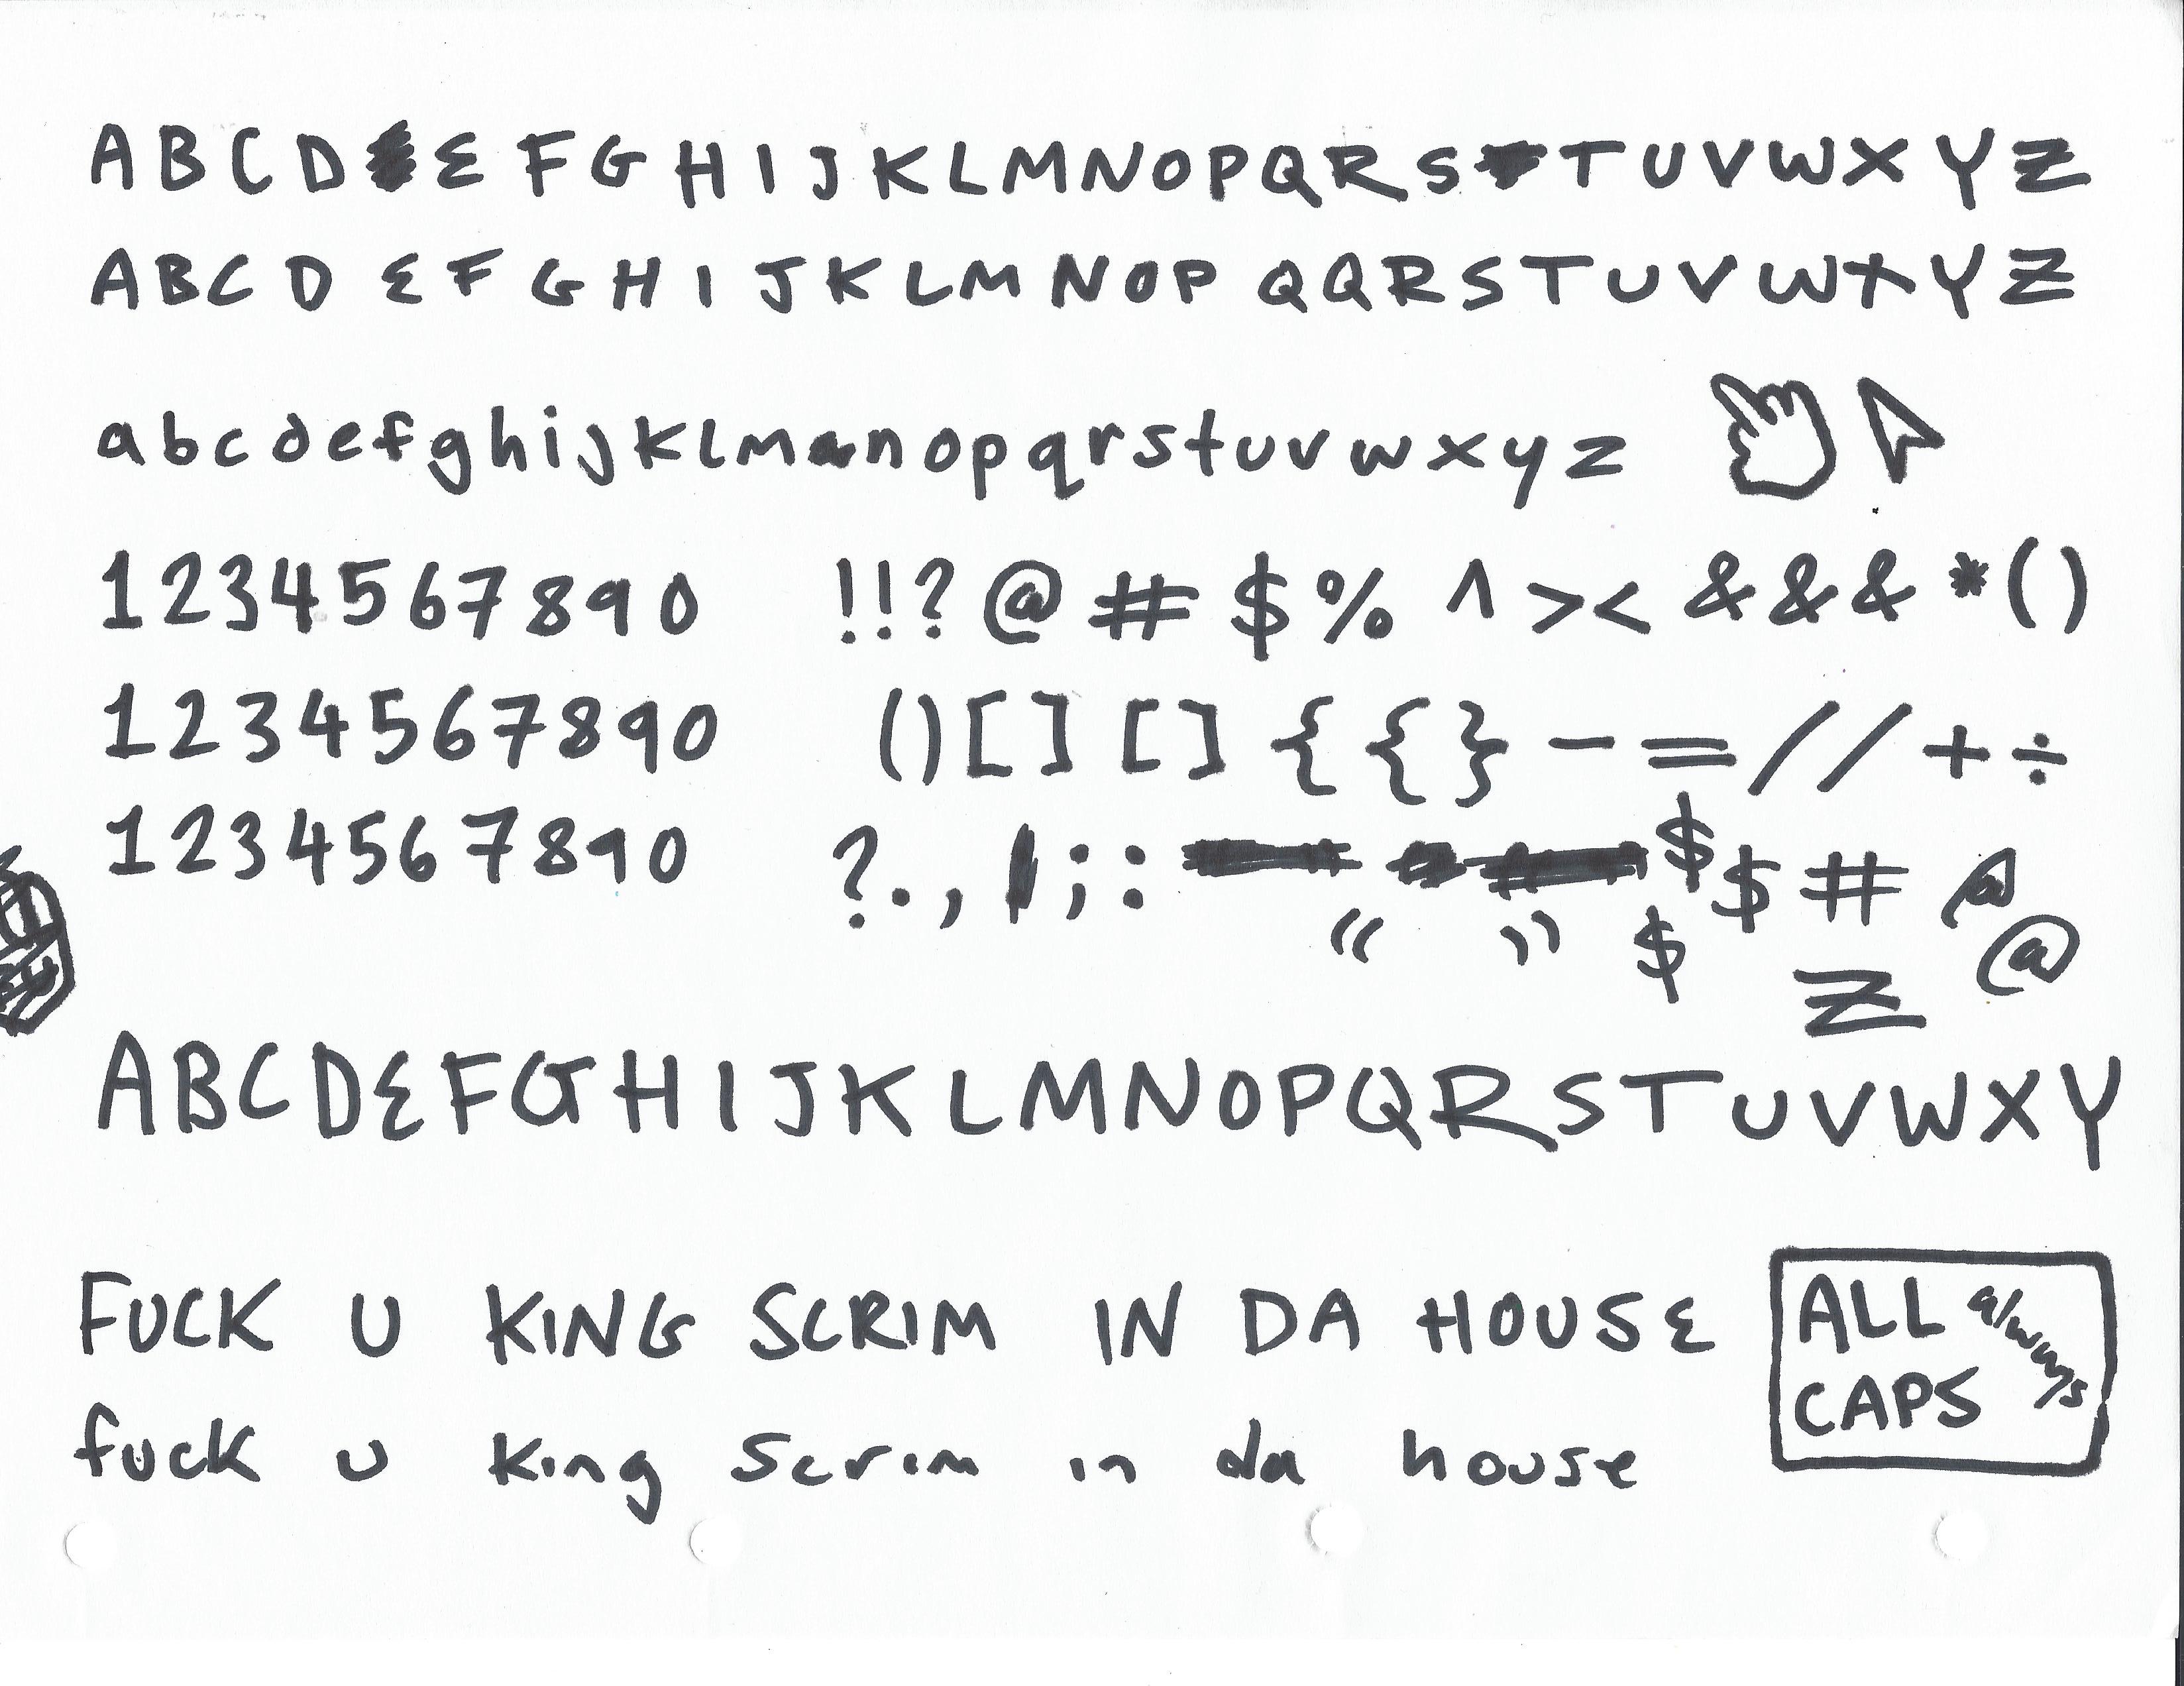 A B C D E F G H I J K L M N O P Q R S T U V W X Y Z
A B C D E F G H I J K L M N O P Q Q R S T U V W X Y Z
a b c d e f g h i j k l m n o p q r s t u v w x y z
1 2 3 4 5 6 7 8 9 0 ! ! ? @ # $ % ^ > < & & & * ( )
1 2 3 4 5 6 7 8 9 0 ( ) [ ] [ ] { { } - = / / + ÷
1 2 3 4 5 6 7 8 9 0 ? . , ; : $ $ # @
“ ” $ @
Z
A B C D E F G H I J K L M N O P Q R S T U V W X Y
FUCK U KING SCRIM IN DA HOUSE
fuck u king scrim in da house
ALL always
CAPS